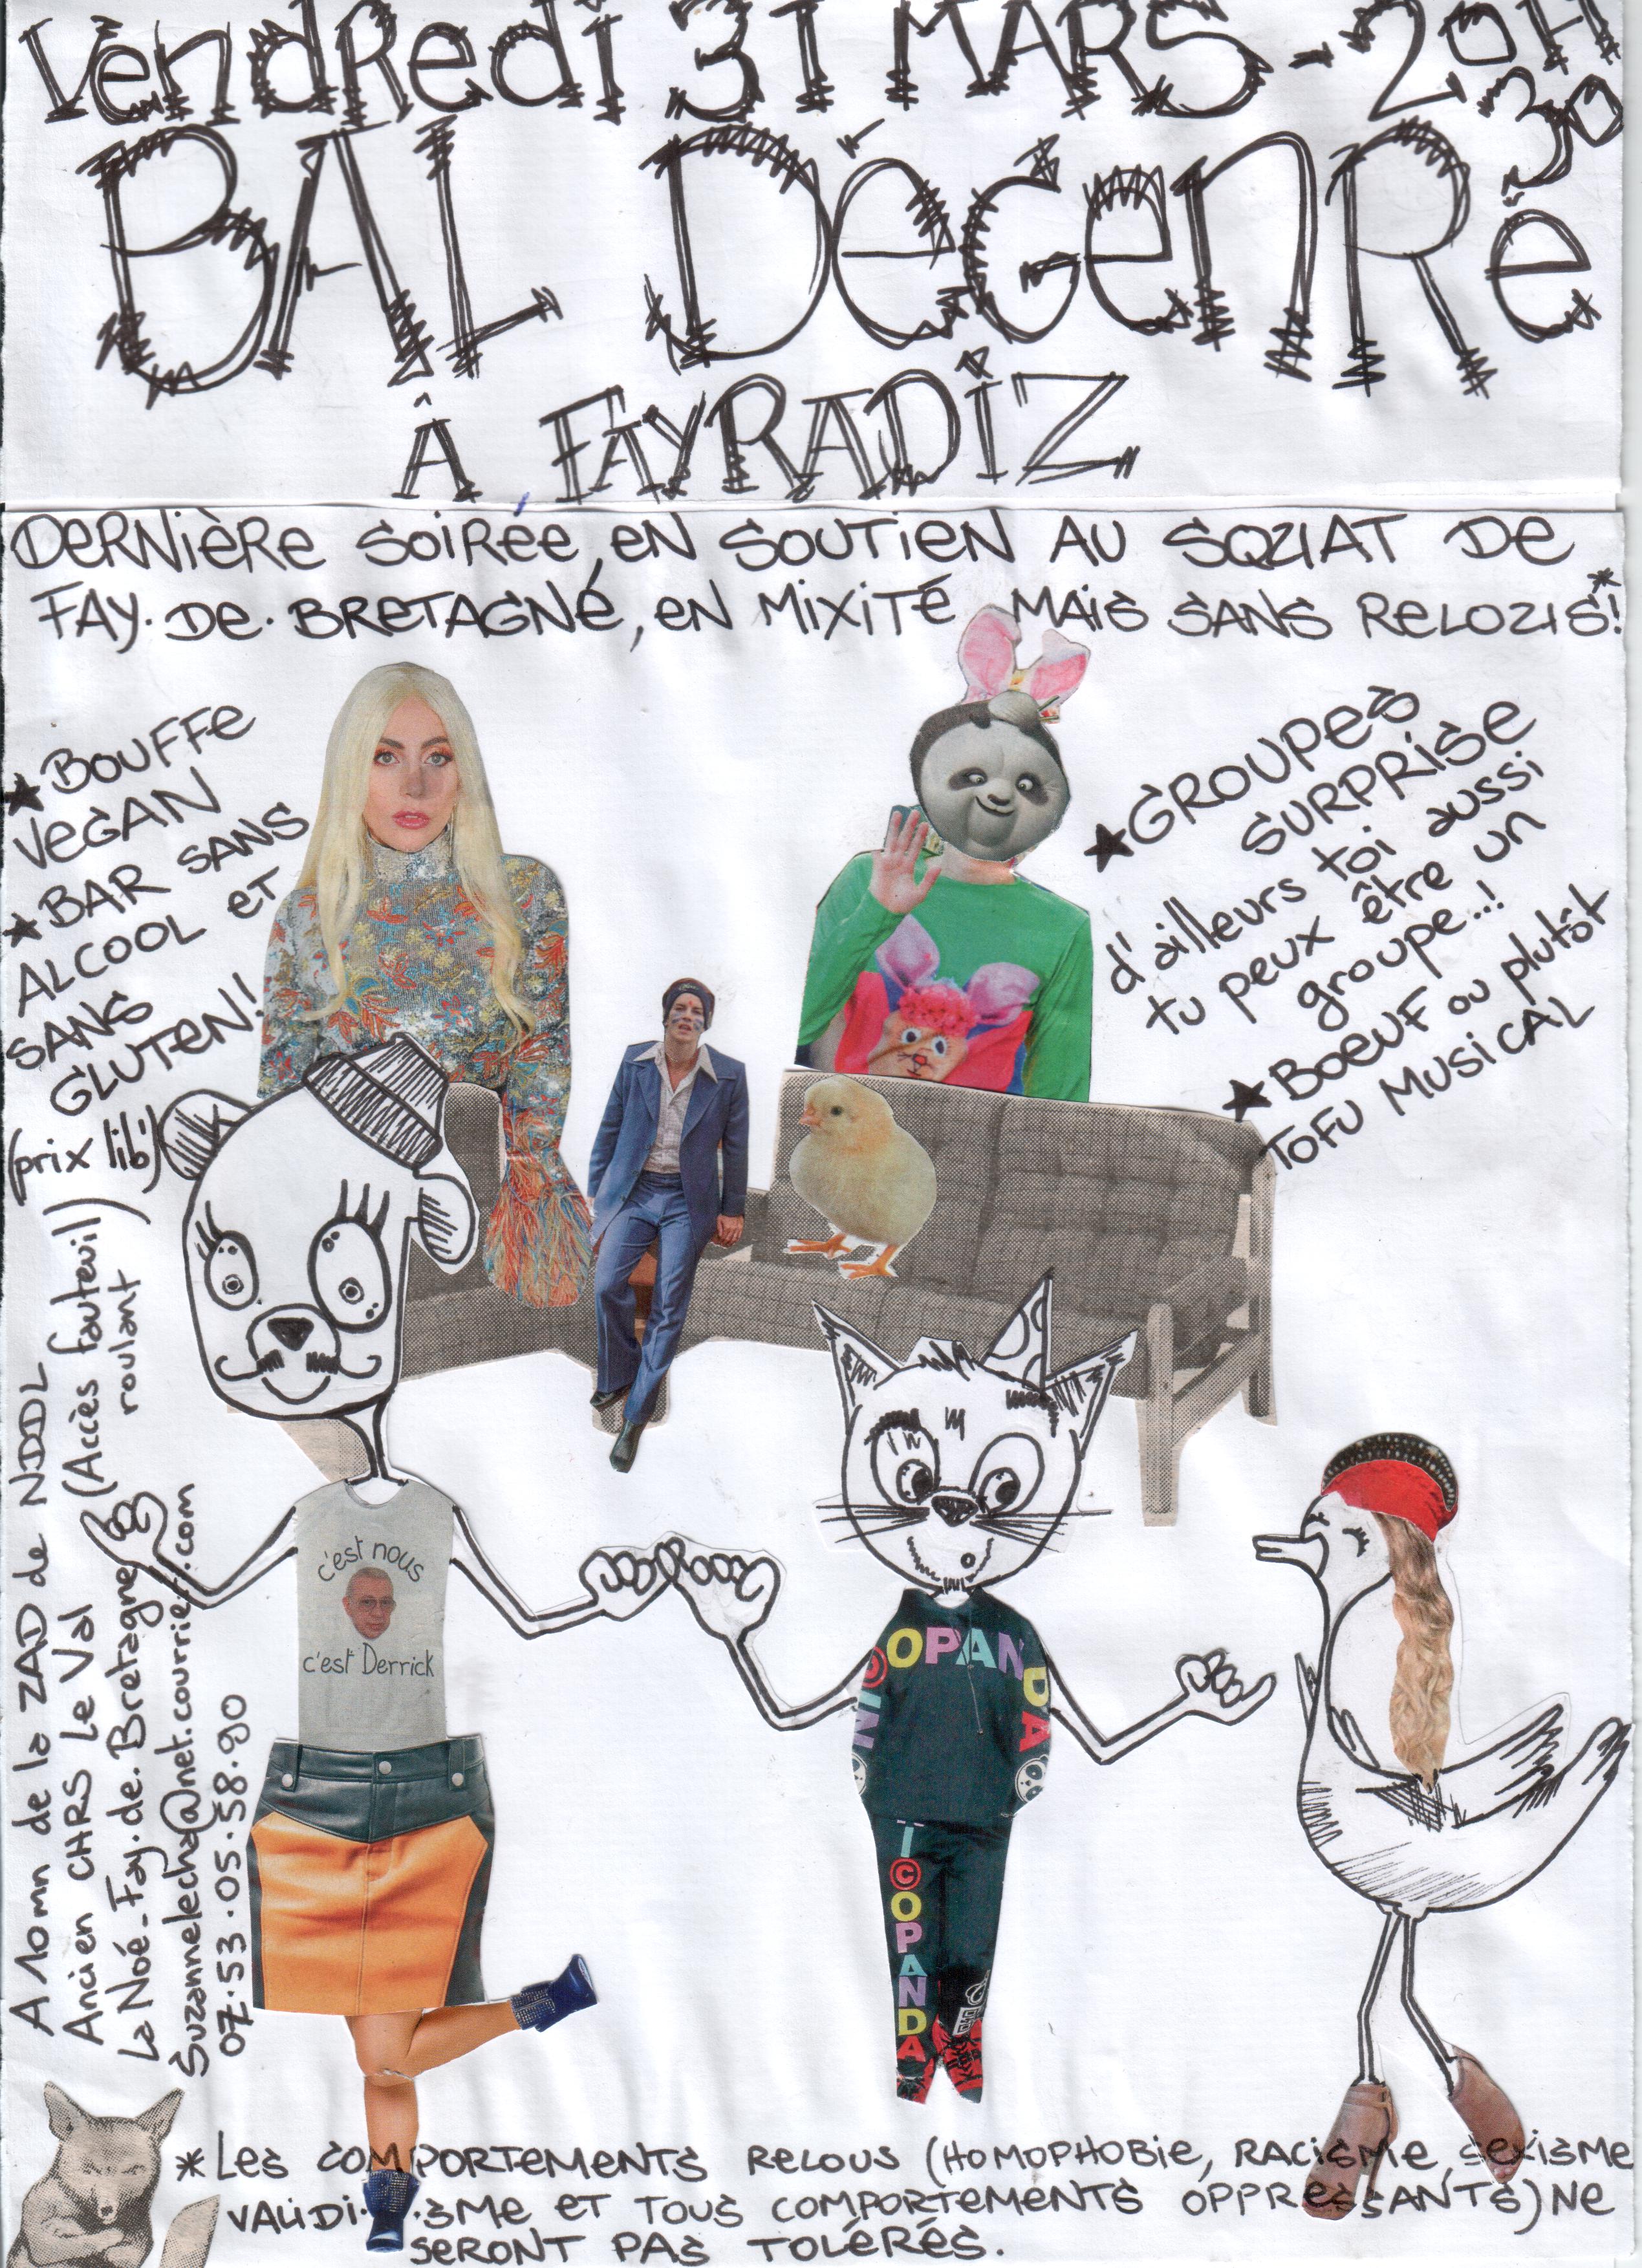 Vendredi 31 MARS - 20H30
BAL DéGenRé
À FAYRADIZ
DERNIÈRE SOIRÉE, EN SOUTIEN AU SQUAT DE
FAY-DE-BRETAGNE, EN MIXITÉ MAIS SANS RELOUS*!
★ BOUFFE
VEGAN
★ BAR SANS
ALCOOL ET
SANS
GLUTEN!
(prix lib')
★ GROUPES
SURPRISE
d'ailleurs toi aussi
tu peux être un
groupe...!
★ BOEUF ou plutôt
TOFU MUSICAL
A 10mn de la ZAD de NDDL
Ancien CHRS Le Val (Accès fauteuil roulant)
La Noé-Fay-de-Bretagne
Suzannelecha@net.courrier.com
07.53.05.58.90
c'est nous
c'est Derrick
OPANDA
I©OPANDA
*LES COMPORTEMENTS RELOUS (HOMOPHOBIE, RACISME, SEXISME
VALIDISME ET TOUS COMPORTEMENTS OPPRESSANTS) NE
SERONT PAS TOLÉRÉS.